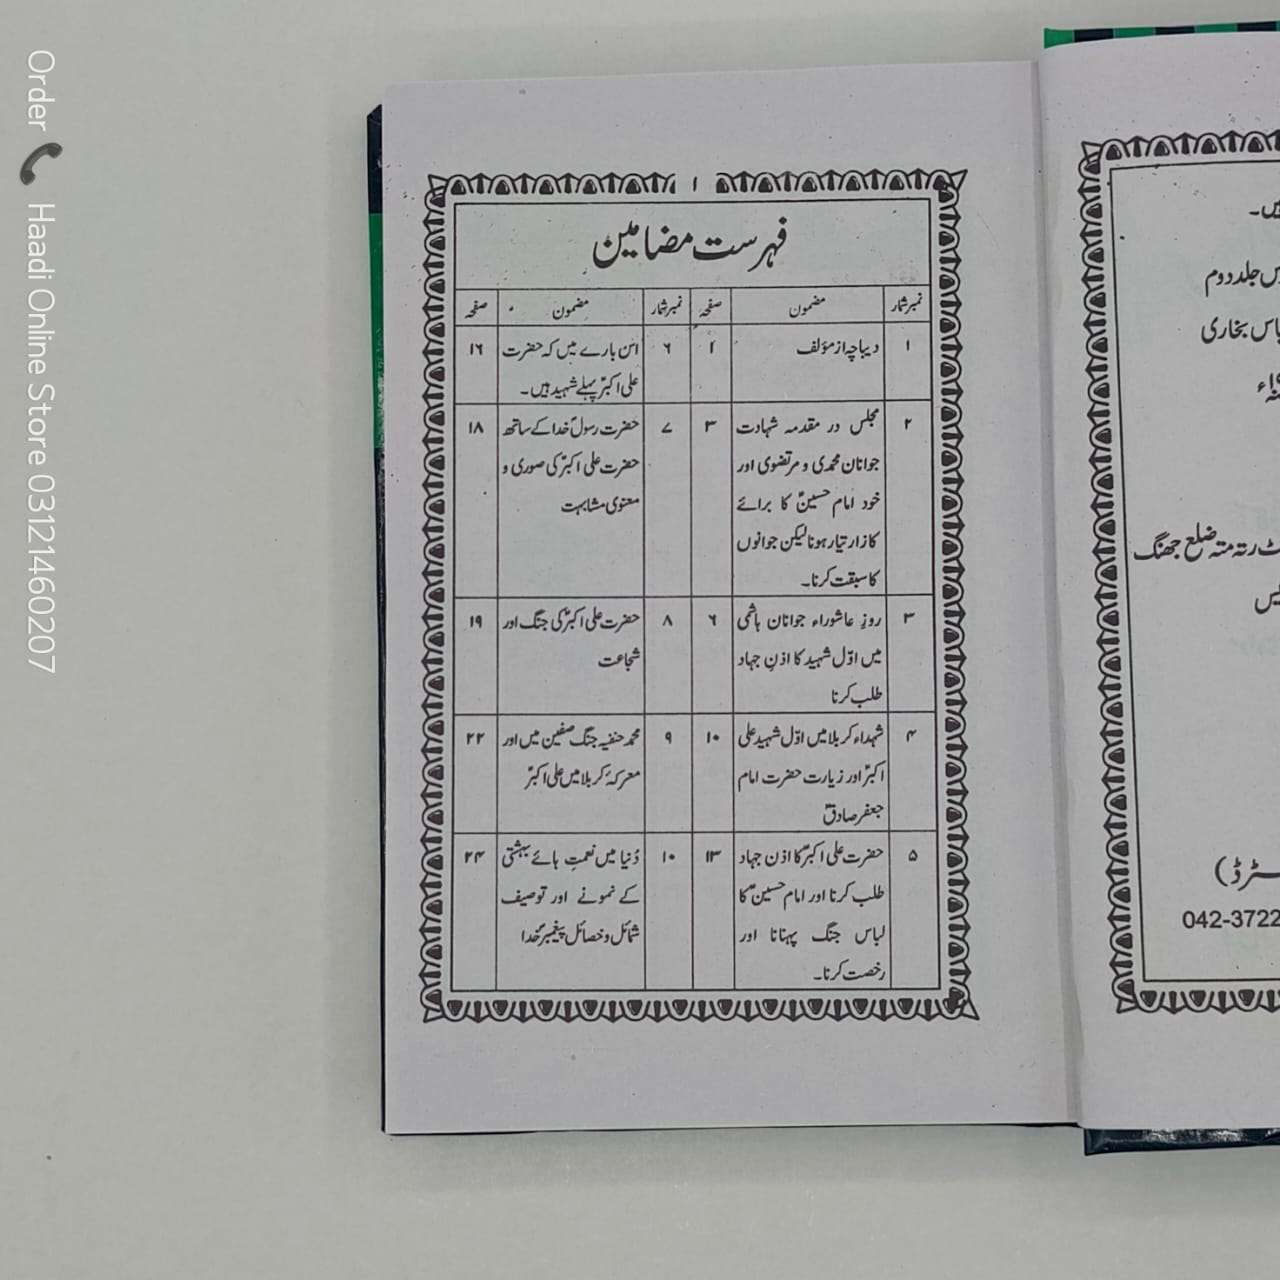 ۱
فہرست مضامین
نمبرشمار مضمون صفحہ نمبرشمار مضمون صفحہ
۱ دیباچہ از مؤلف ۱
۲ مجلس در مقدمہ شہادت ۳
جوانان محمدی و مرتضوی اور
خود امام حسینؑ کا برائے
کازار تیار ہونا لیکن جوانوں
کا سبقت کرنا۔
۳ روز عاشوراء جوانان ہاشمی ۶
میں اوّل شہید کا اذنِ جہاد
طلب کرنا
۴ شہداء کربلا میں اوّل شہید علی ۱۰
اکبرؑ اور زیارت حضرت امام
جعفر صادقؑ
۵ حضرت علی اکبرؑ کا اذن جہاد ۱۳
طلب کرنا اور امام حسینؑ کا
لباس جنگ پہنانا اور
رخصت کرنا۔
۶ اس بارے میں کہ حضرت ۱۶
علی اکبرؑ پہلے شہید ہیں۔
۷ حضرت رسولؐ خدا کے ساتھ ۱۸
حضرت علی اکبرؑ کی صوری و
معنوی مشابہت
۸ حضرت علی اکبرؑ کی جنگ اور ۱۹
شجاعت
۹ محمد حنفیہ جنگ صفین میں اور ۲۲
معرکۂ کربلا میں علی اکبرؑ
۱۰ دُنیا میں نعمتِ ہائے بہشتی ۲۴
کے نمونے اور توصیف
شمائل و خصائل پیغمبرؐ خدا
جلد دوم
بخاری
رتہ متہ ضلع جھنگ
042-3722
Order 📞 Haadi Online Store 03121460207